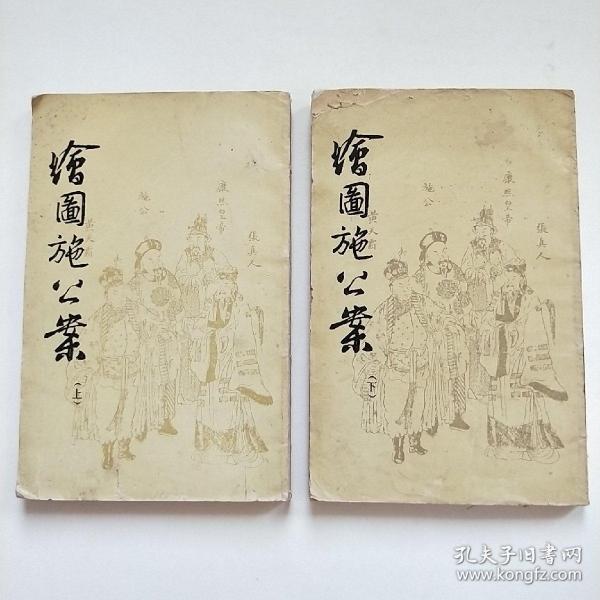 繪圖施公案
(上)
黃天霸
施公
康熙皇帝
張真人
繪圖施公案
(下)
黃天霸
施公
康熙皇帝
張真人
孔夫子旧书网
www.kongfz.com